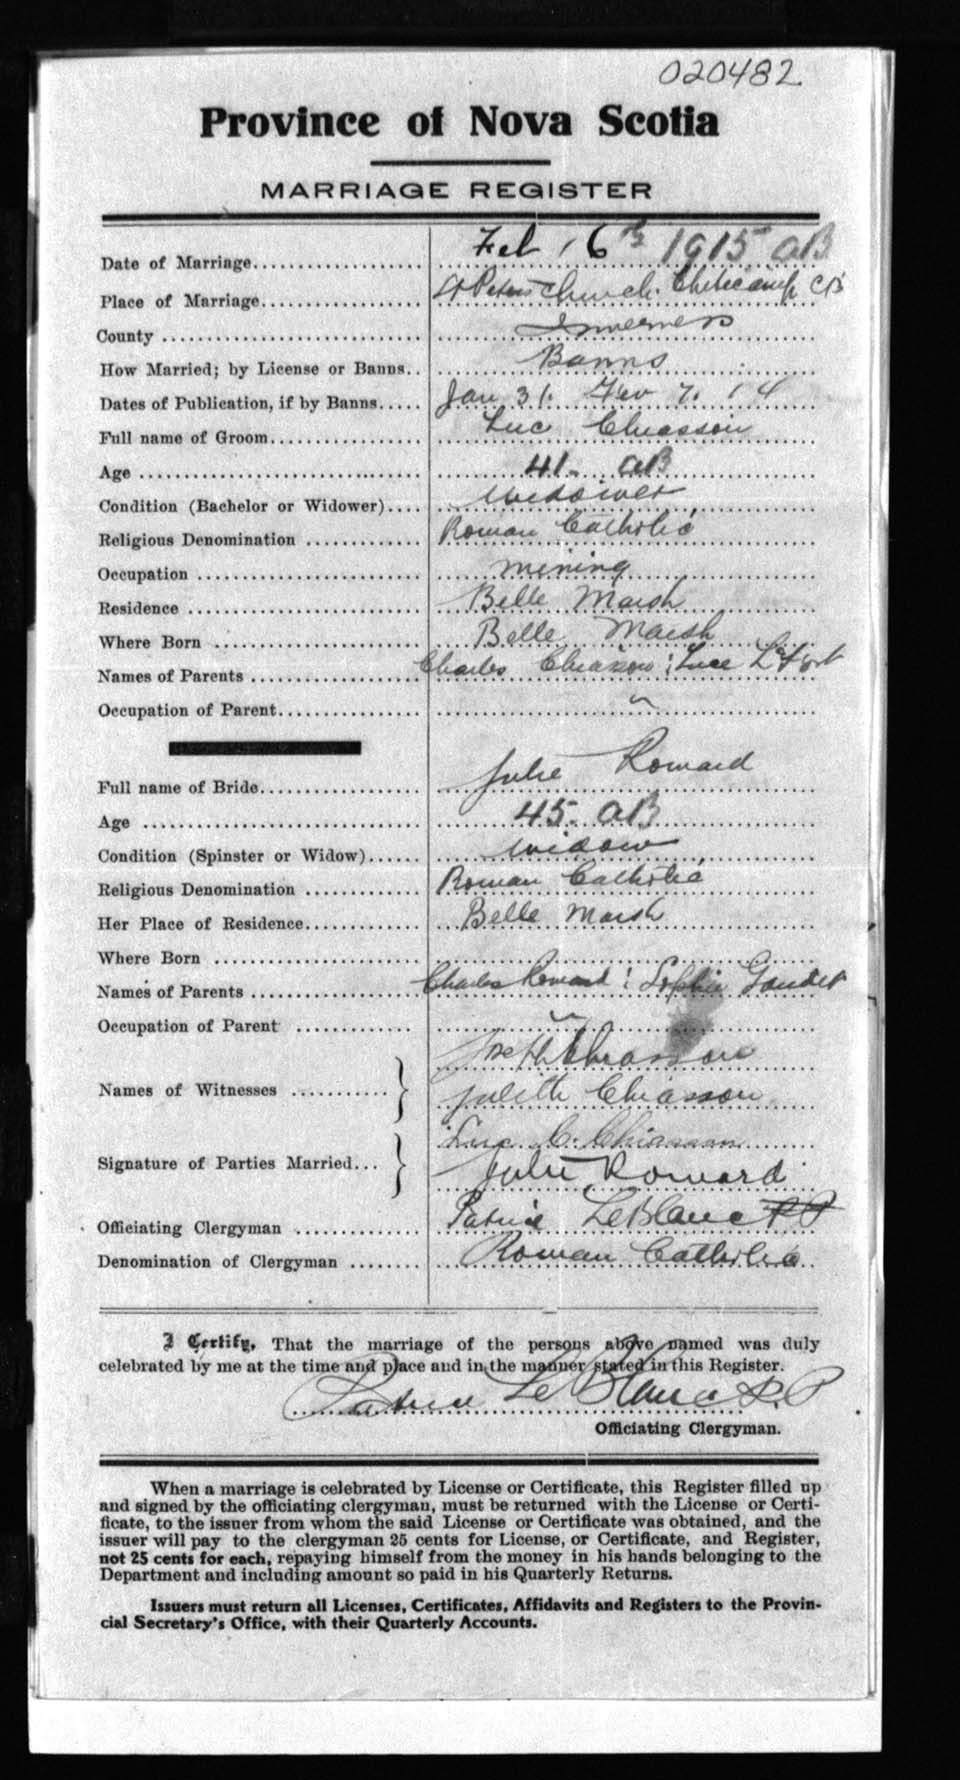 020482
Province of Nova Scotia
MARRIAGE REGISTER
Date of Marriage Feb 16th 1915 aB
Place of Marriage St Peters Church Cheticamp CB
County Inverness
How Married; by License or Banns Banns
Dates of Publication, if by Banns Jan 31. Fev 7. 14
Full name of Groom Luc Chiasson
Age 41. aB
Condition (Bachelor or Widower) widower
Religious Denomination Roman Catholic
Occupation mining
Residence Belle Marsh
Where Born Belle Marsh
Names of Parents Charles Chiasson : Luce LeFort
Occupation of Parent ~
Full name of Bride Julie Romard
Age 45. aB
Condition (Spinster or Widow) widow
Religious Denomination Roman Catholic
Her Place of Residence Belle Marsh
Where Born
Names of Parents Charles Romard : Sophie Gaudet
Occupation of Parent ~
Names of Witnesses } Joseph Chiasson
Judith Chiasson
Signature of Parties Married } Luc C. Chiasson
Julie Romard
Officiating Clergyman Patrice LeBlanc PP
Denomination of Clergyman Roman Catholic
I Certify, That the marriage of the persons above named was duly
celebrated by me at the time and place and in the manner stated in this Register.
Patrice LeBlanc P.P
Officiating Clergyman.
When a marriage is celebrated by License or Certificate, this Register filled up
and signed by the officiating clergyman, must be returned with the License or Certi-
ficate, to the issuer from whom the said License or Certificate was obtained, and the
issuer will pay to the clergyman 25 cents for License, or Certificate, and Register,
not 25 cents for each, repaying himself from the money in his hands belonging to the
Department and including amount so paid in his Quarterly Returns.
Issuers must return all Licenses, Certificates, Affidavits and Registers to the Provin-
cial Secretary's Office, with their Quarterly Accounts.